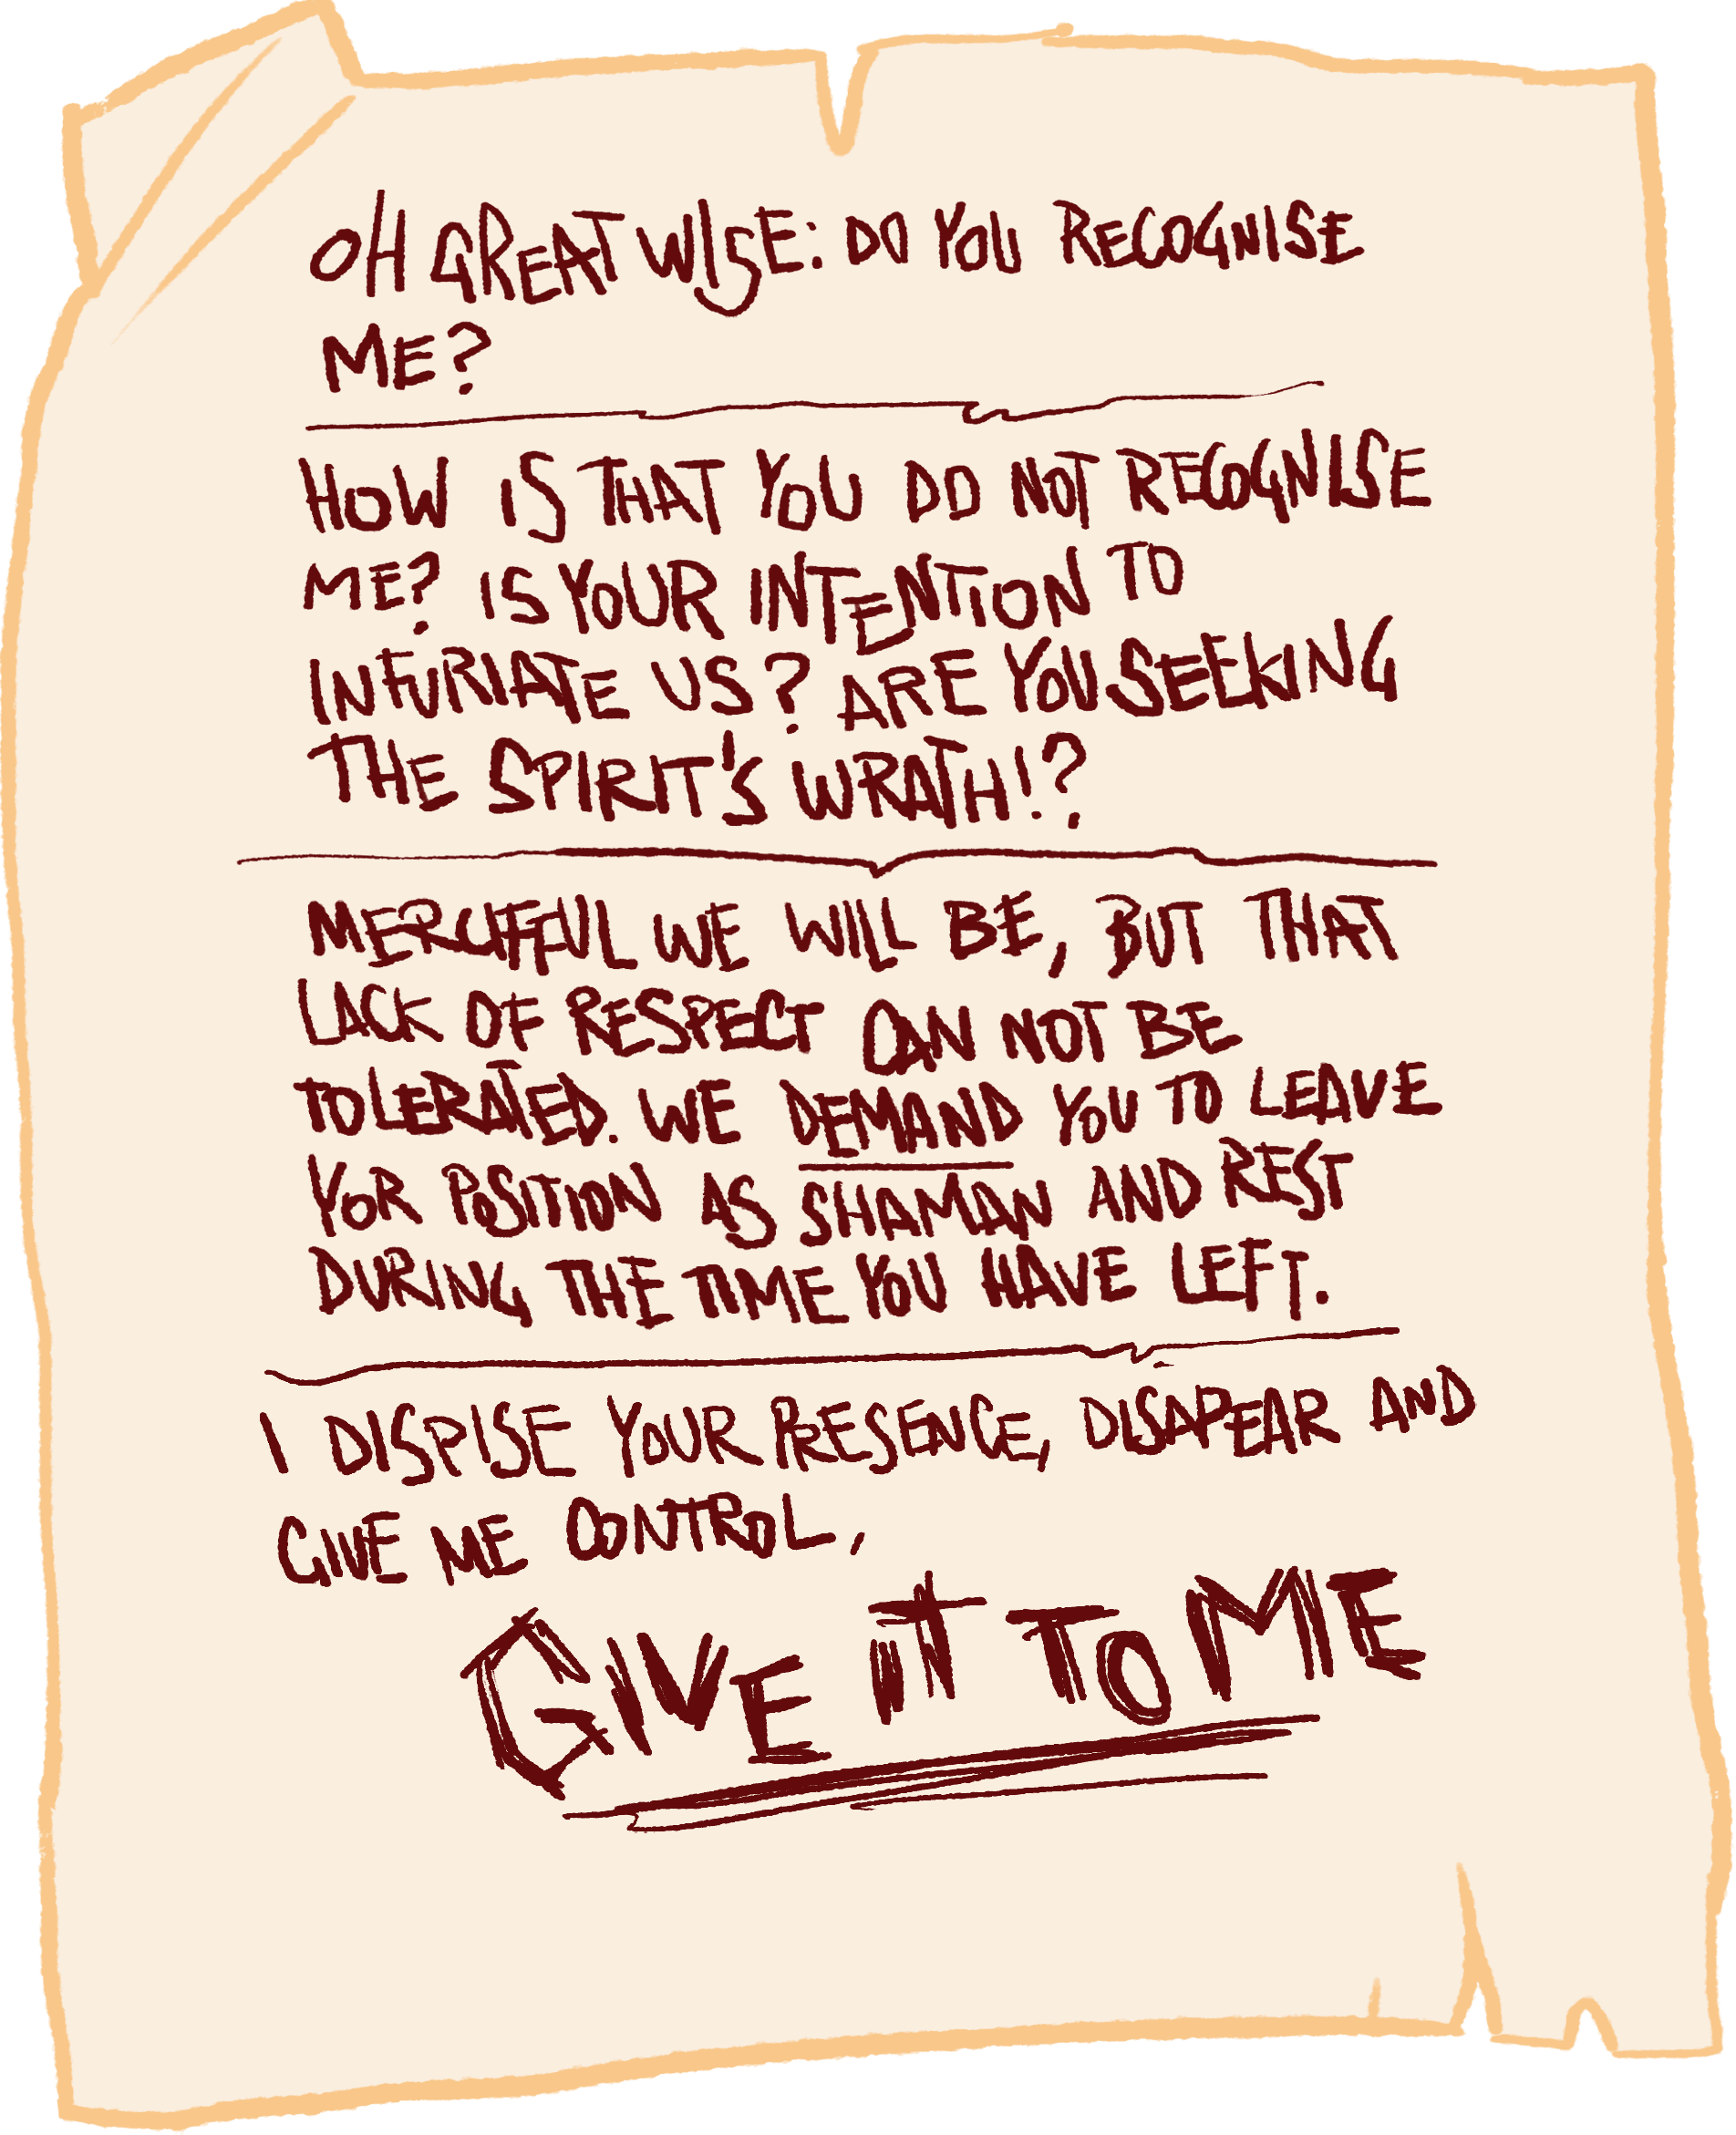 OH GREAT WISE: DO YOU RECOGNISE
ME?
HOW IS THAT YOU DO NOT RECOGNISE
ME? IS YOUR INTENTION TO
INFURIATE US? ARE YOU SEEKING
THE SPIRIT'S WRATH!?
MERCIFUL WE WILL BE, BUT THAT
LACK OF RESPECT CAN NOT BE
TOLERATED. WE DEMAND YOU TO LEAVE
YOR POSITION AS SHAMAN AND REST
DURING THE TIME YOU HAVE LEFT.
I DISPISE YOUR PRESENCE, DISAPEAR AND
GIVE ME CONTROL,
GIVE IT TO ME